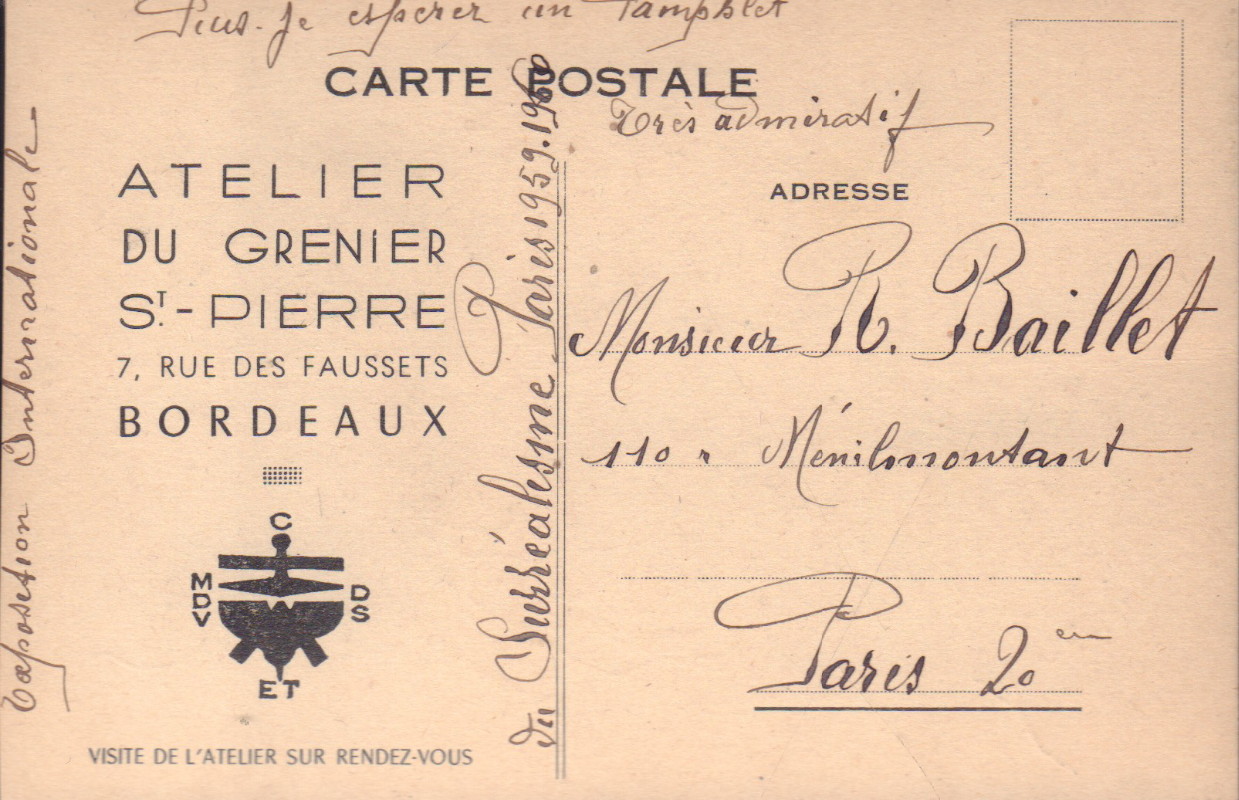 Puis-je espérer un Pamphlet
CARTE POSTALE
Très admiratif
ATELIER
DU GRENIER
ST.-PIERRE
7, RUE DES FAUSSETS
BORDEAUX
C
MDV
DS
ET
VISITE DE L'ATELIER SUR RENDEZ-VOUS
Exposition Internationale
du Surréalesme Paris 1959.1960
ADRESSE
Monsieur R. Baillet
110 r Ménilmontant
Paris 20em